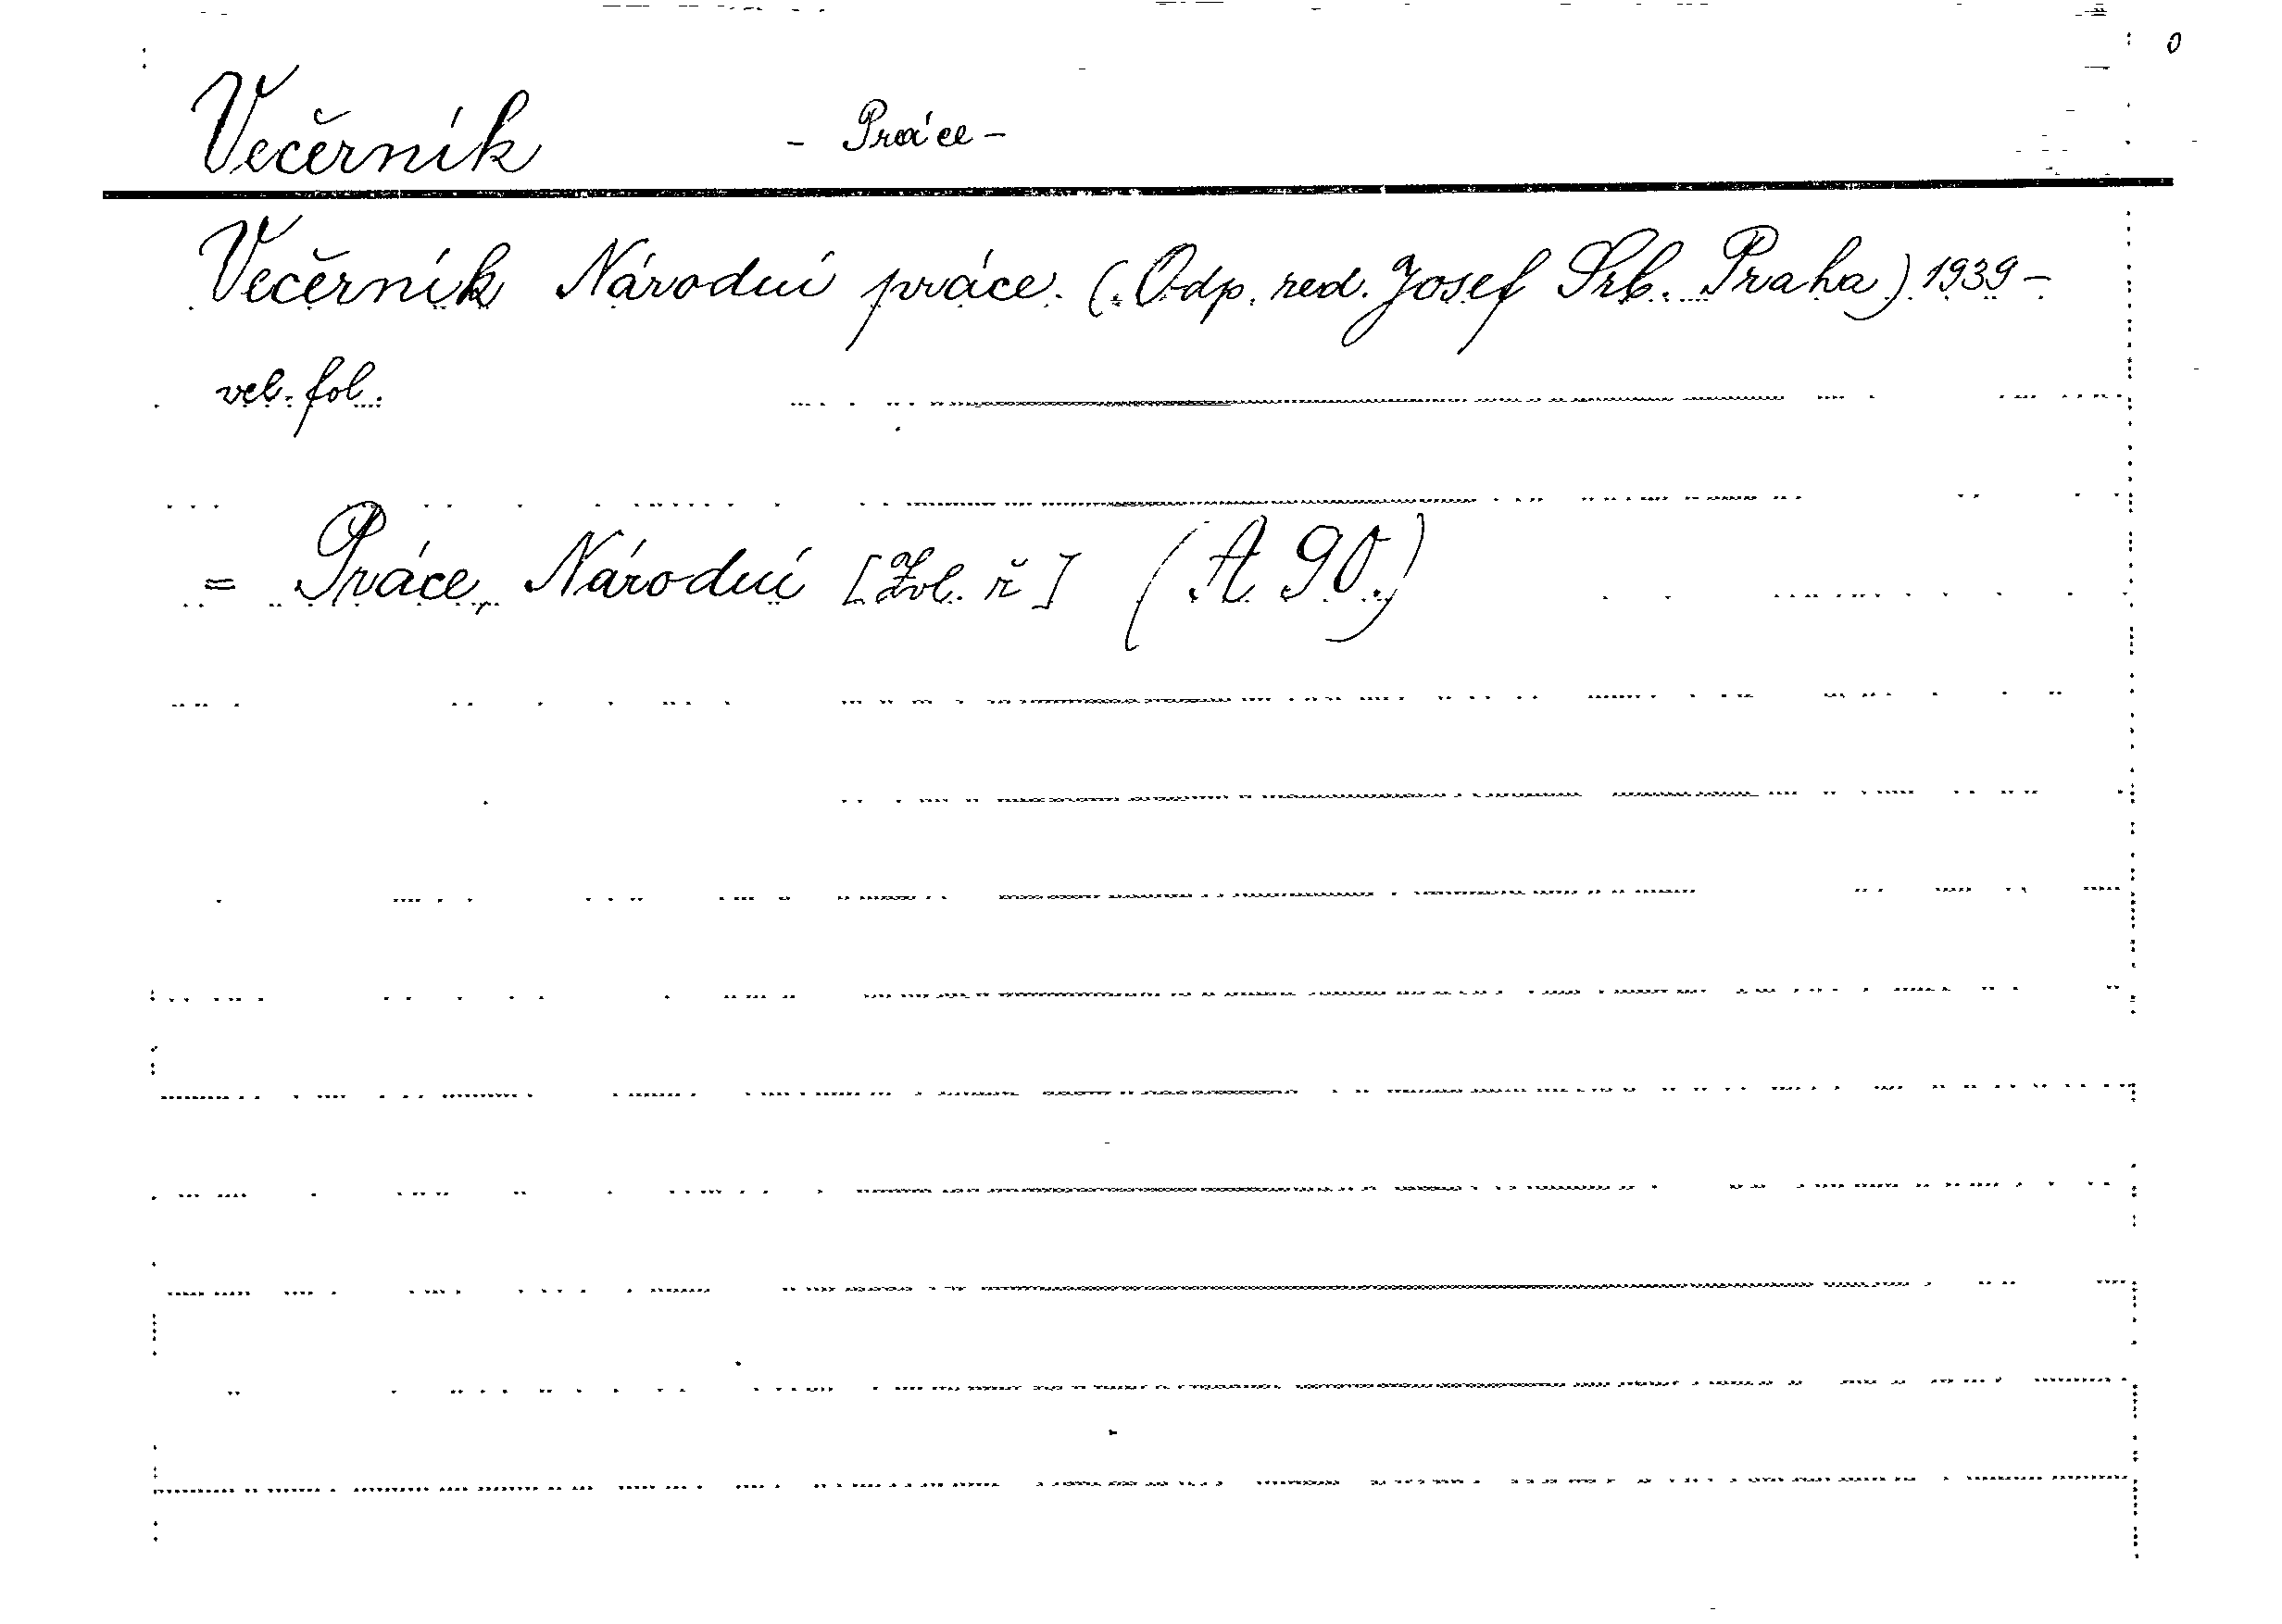 Večerník - Práce -
Večerník Národní práce. (Odp. red. Josef Srb. Praha) 1939 -
vel. fol.
= Práce, Národní [Zvl. ř] (A 90.)